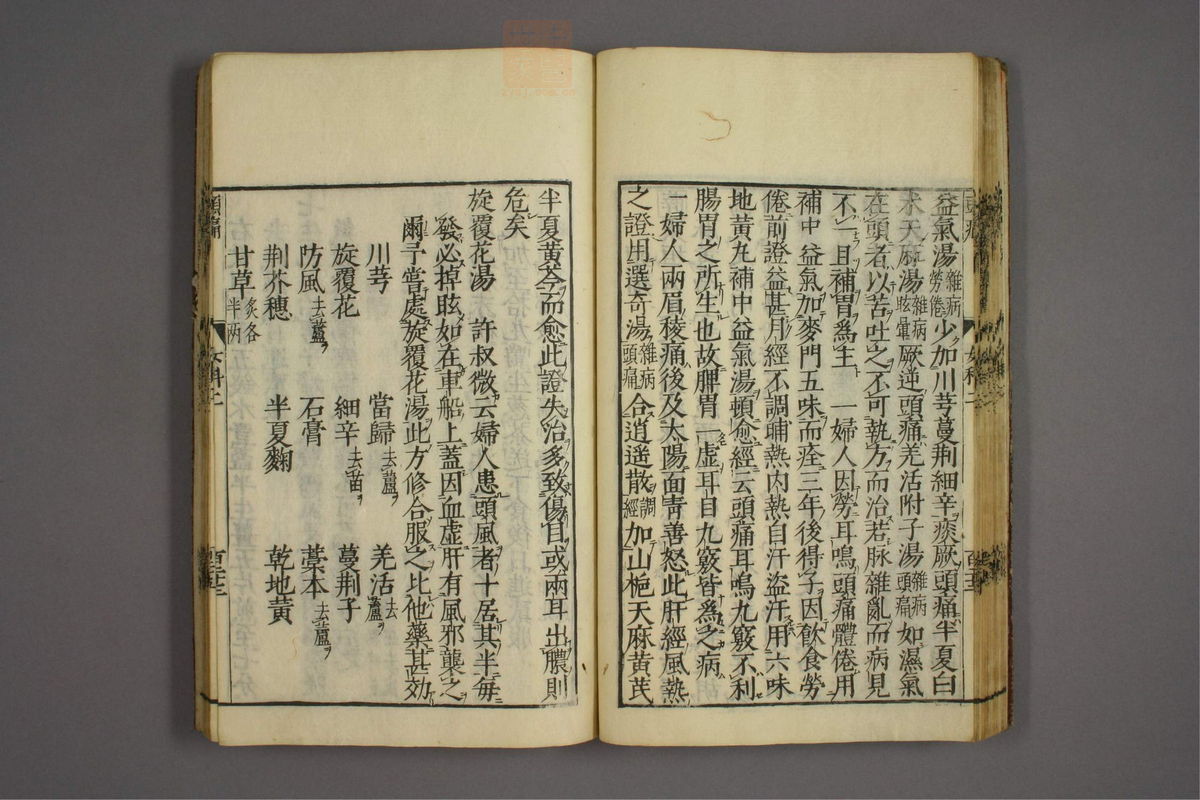 益氣湯雜病勞倦少加川芎蔓荆細辛痰厥頭痛半夏白
朮天麻湯雜病眩暈厥逆頭痛羌活附子湯雜病頭痛如濕氣
在頭者以苦吐之不可執方而治若脉雜亂而病見
不一且補胃爲主 一婦人因勞耳鳴頭痛體倦用
補中益氣加麥門五味而痊三年後得子因飲食勞
倦前證益甚月經不調晡熱内熱自汗盗汗用六味
地黄丸補中益氣湯頓愈經云頭痛耳鳴九竅不利
腸胃之所生也故脾胃一虚耳目九竅皆爲之病
一婦人兩眉稜痛後及太陽面青善怒此肝經風熱
之證用選奇湯雜病頭痛合逍遥散調經加山梔天麻黄芪
半夏黄芩而愈此證失治多致傷目或兩耳出膿則
危矣
旋覆花湯 許叔微云婦人患頭風者十居其半毎
發必掉眩如在車船上蓋因血虚肝有風邪襲之
爾予嘗處旋覆花湯此方修合服之比他藥甚効
川芎 當歸去蘆 羌活去蘆
旋覆花 細辛去苗 蔓荆子
防風去蘆 石膏 藁本去蘆
荆芥穗 半夏麴 乾地黄
甘草炙各半兩
女科上